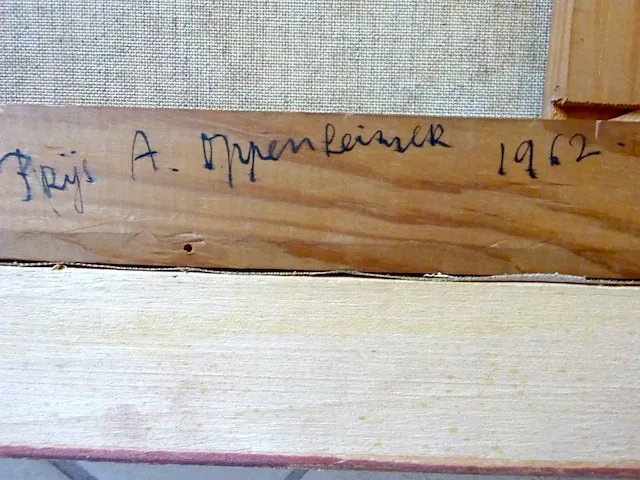 Prijs A. Oppenheimer 1962.